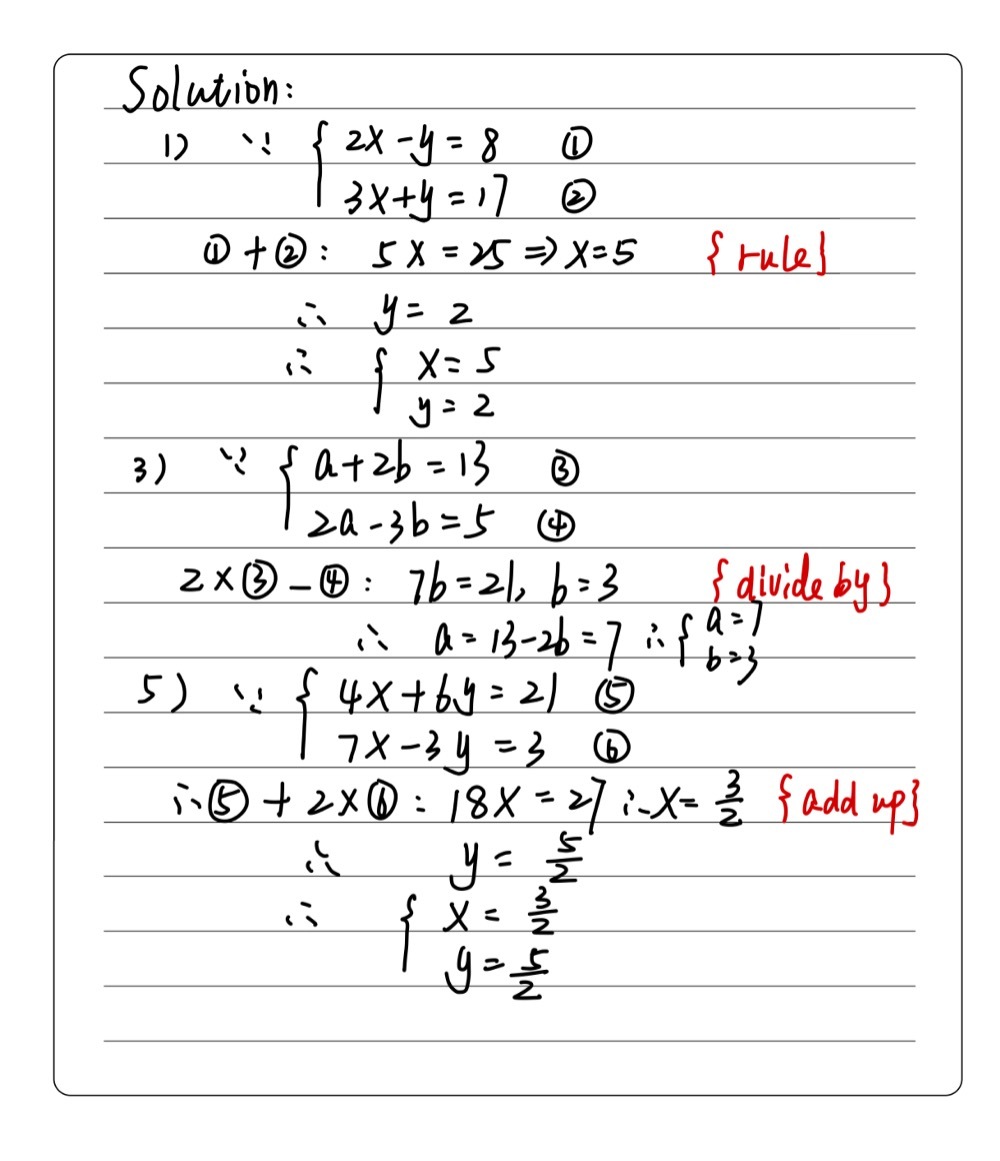 Solution:
1) ∵ { 2x-y=8 ①
3x+y=17 ②
①+②: 5x=25 ⇒ x=5 {rule}
∴ y=2
∴ { x=5
y=2
3) ∵ { a+2b=13 ③
2a-3b=5 ④
2×③-④: 7b=21, b=3 {divide by}
∴ a=13-2b=7 ∴ { a=7
b=3
5) ∵ { 4x+6y=21 ⑤
7x-3y=3 ⑥
∴ ⑤+2×⑥: 18x=27 ∴ x=3/2 {add up}
∴ y=5/2
∴ { x=3/2
y=5/2